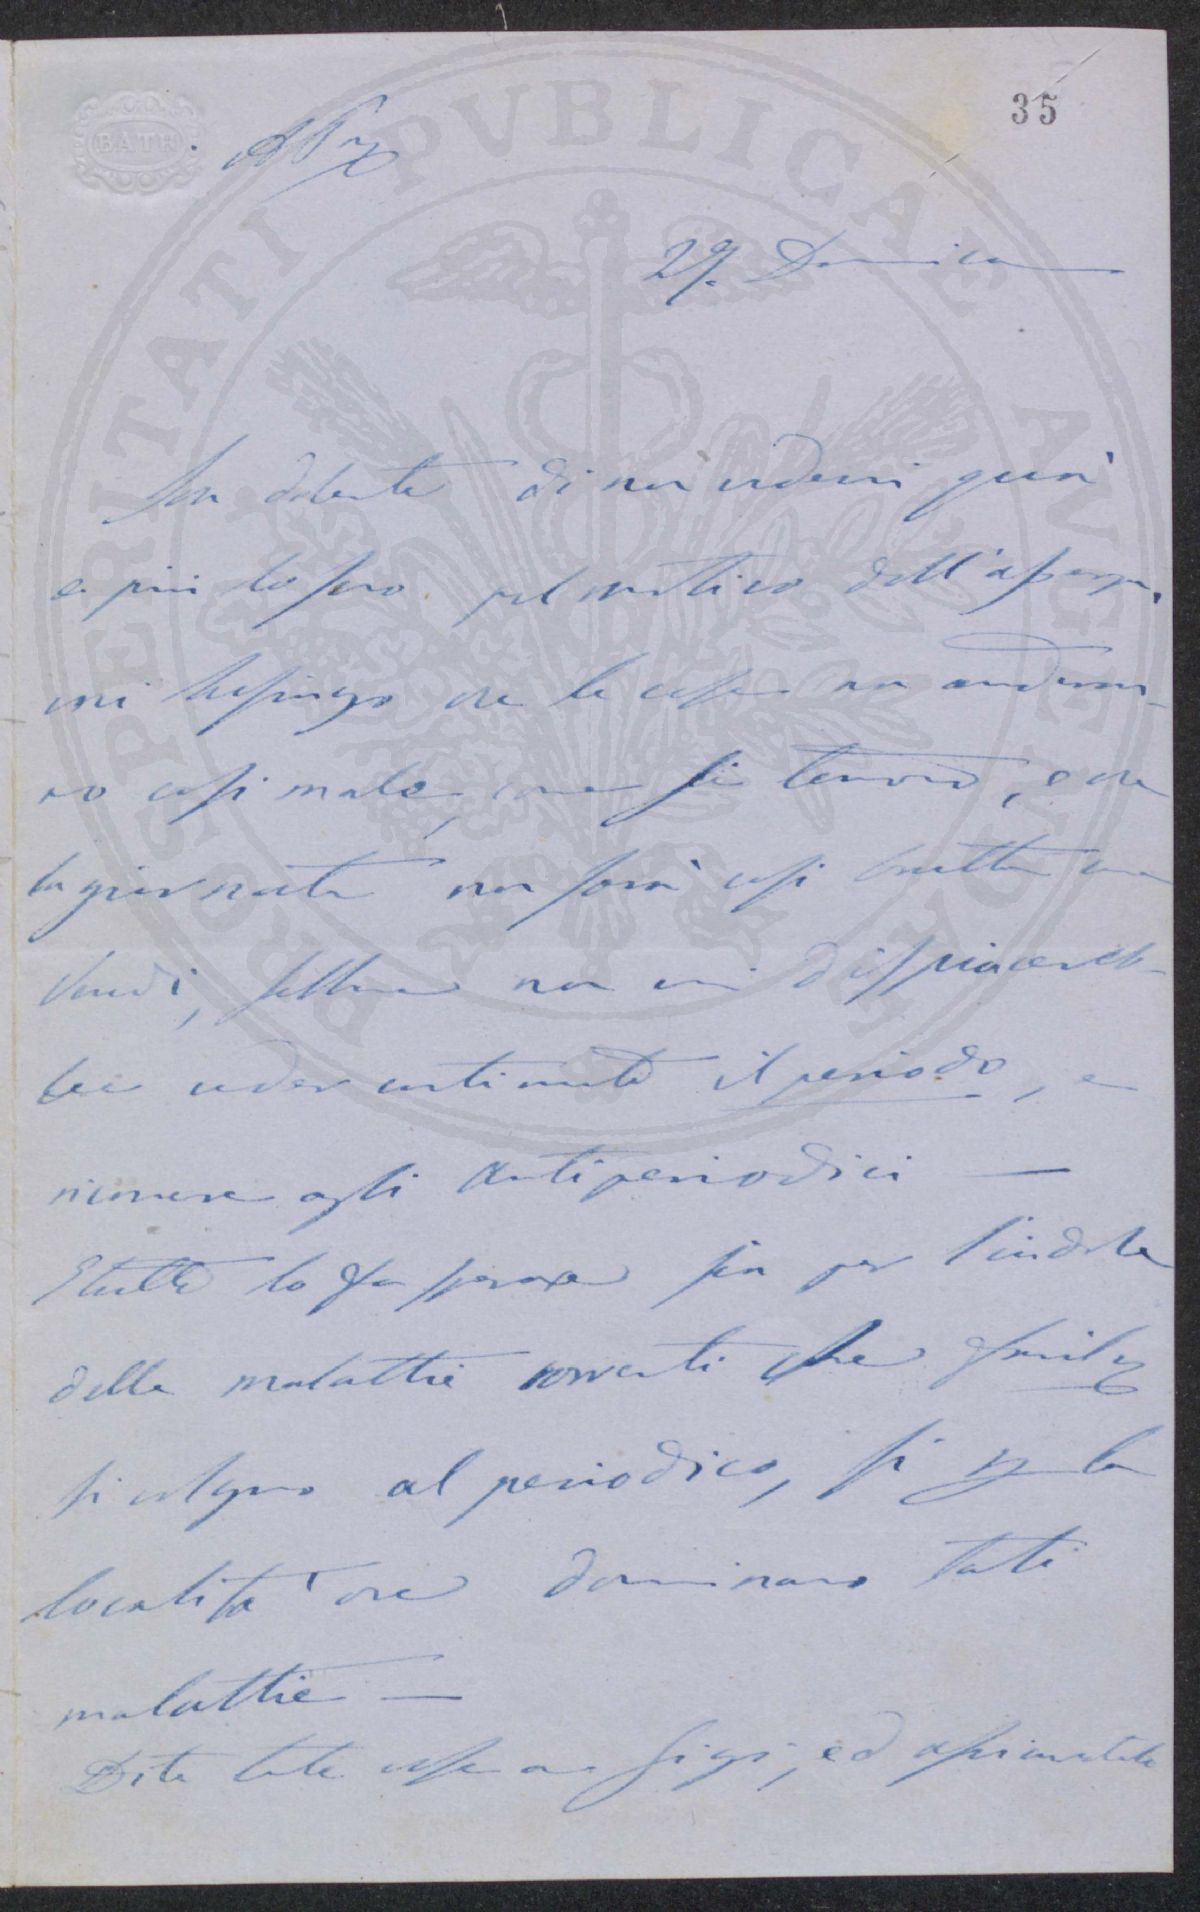 35
BATH
PROSPERITATI PVBLICAE AVGENDAE
29. Domenica
Son dolente di non vedervi quà
e più lo sono pel motivo dell'assenza.
mi lusingo che le cose non anderan-
no così male, come si temono, e che
la giornata non sarà così brutta come
, sebbene non mi dispiacereb-
be veder continuato il periodo, e
ricorrere agli antiperiodici —
E tutto lo fa sperare sia per l'indole
delle malattie correnti che
si volgono al periodico, sì per la
località ove dominano tali
malattie —
Dite tale cose a Gigi, ed assicuratelo